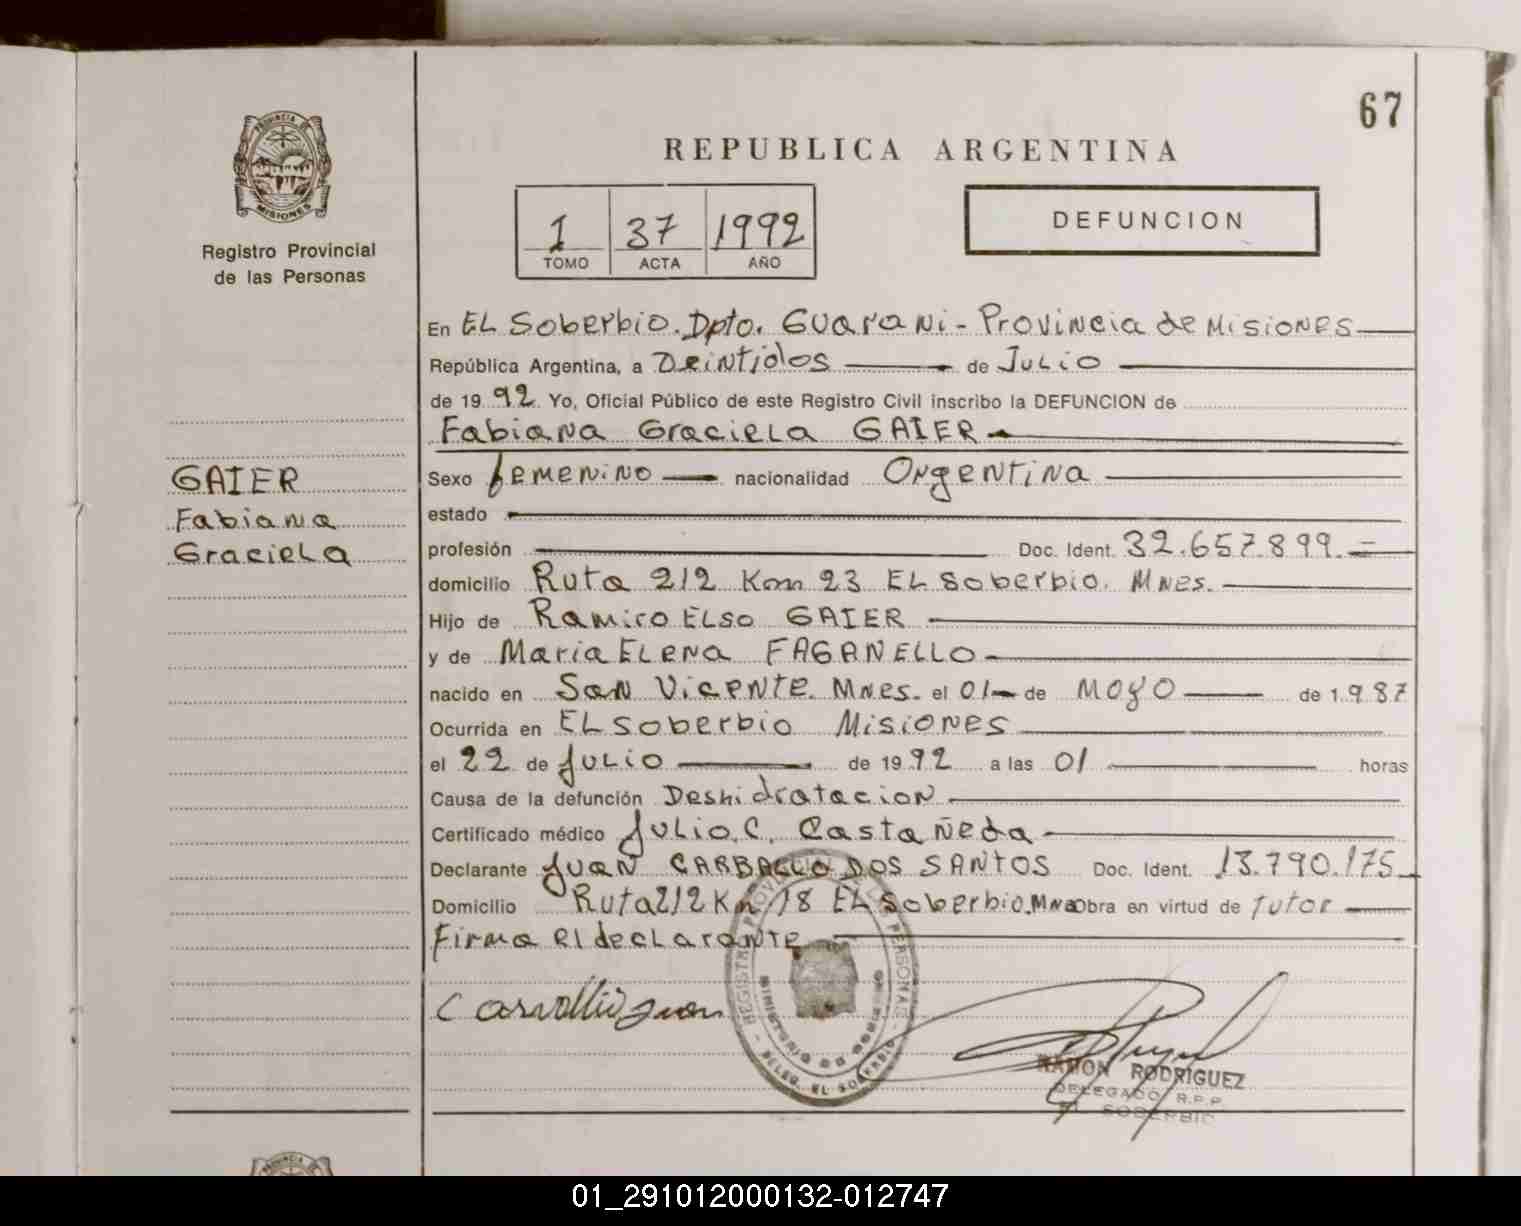 67
PROVINCIA DE
MISIONES
Registro Provincial
de las Personas
REPUBLICA ARGENTINA
1 37 1992
TOMO ACTA AÑO
DEFUNCION
En EL Soberbio. Dpto. Guarani - Provincia de Misiones
República Argentina, a Veintidos de Julio
de 19 92 Yo, Oficial Público de este Registro Civil inscribo la DEFUNCION de
Fabiana Graciela GAIER
GAIER
Fabiana
Graciela
Sexo femenino nacionalidad Argentina
estado
profesión Doc. Ident. 32.657.899.=
domicilio Ruta 212 Km 23 EL Soberbio. Mnes.
Hijo de Ramiro ELSO GAIER
y de Maria ELENA FAGANELLO
nacido en San Vicente. Mnes. el 01 de Mayo de 1.987
Ocurrida en EL Soberbio Misiones
el 22 de Julio de 19 92 a las 01 horas
Causa de la defunción Deshidratacion
Certificado médico Julio. C. Castañeda
Declarante Juan CARBALLO DOS SANTOS Doc. Ident. 13.790.175
Domicilio Ruta 212 Km 18 EL Soberbio. Mnes Obra en virtud de tutor
Firma el declarante
REGISTRO PROVINCIAL DE LAS PERSONAS
MINISTERIO DE GOBIERNO
DELEG. EL SOBERBIO
RAMON RODRIGUEZ
DELEGADO R.P.P.
EL SOBERBIO
01_291012000132-012747